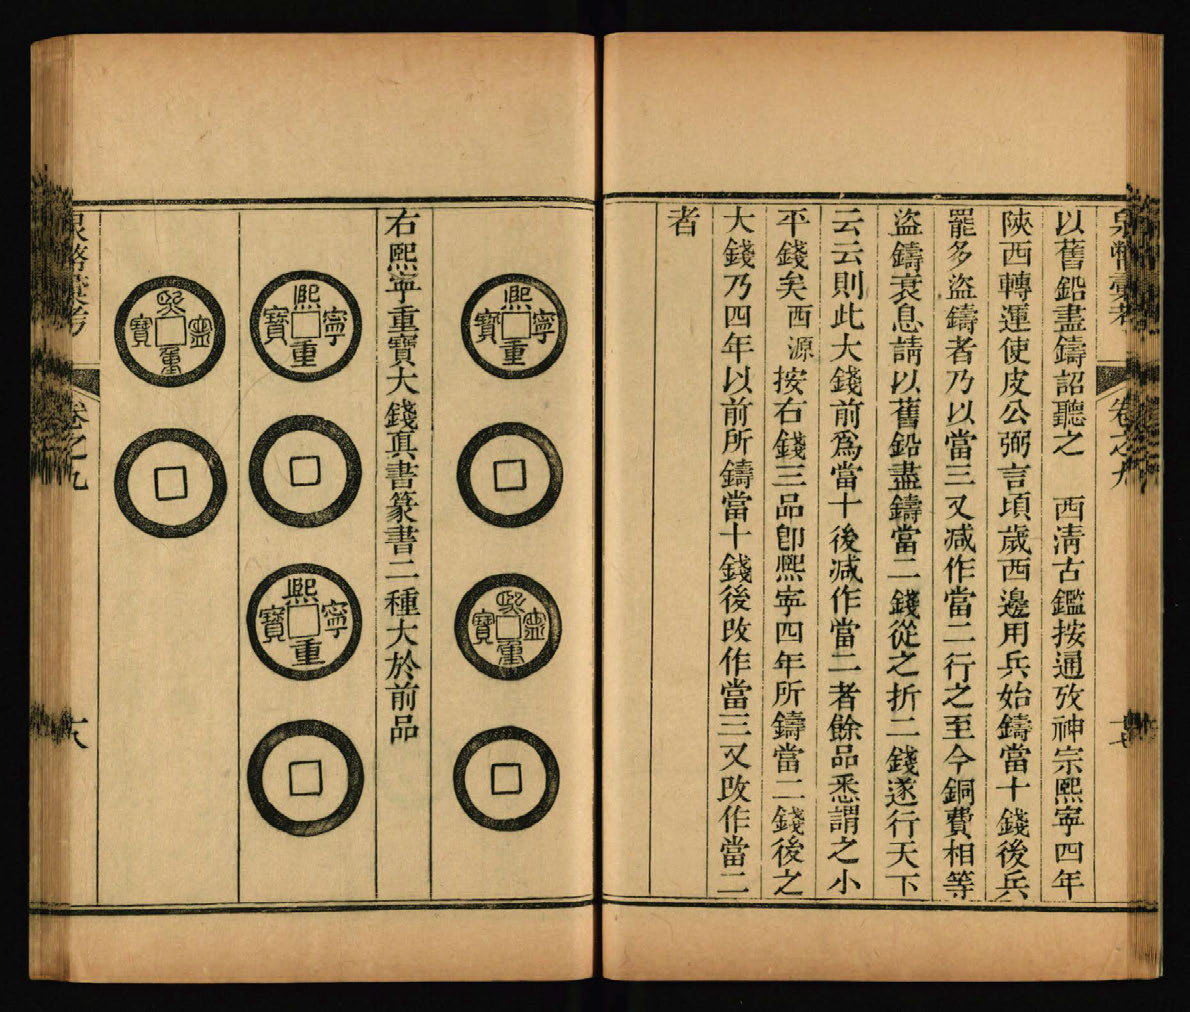 泉幣彙考 卷之九 十七
以舊鉛盡鑄詔聽之 西清古鑑按通攷神宗熙寧四年
陝西轉運使皮公弼言頃歲西邊用兵始鑄當十錢後兵
罷多盜鑄者乃以當三又减作當二行之至今銅費相等
盜鑄衰息請以舊鉛盡鑄當二錢從之折二錢遂行天下
云云則此大錢前爲當十後减作當二者餘品悉謂之小
平錢矣 酉源按右錢三品卽熙寧四年所鑄當二錢後之
大錢乃四年以前所鑄當十錢後改作當三又改作當二
者
熙寧重寶
熙寧重寶
右熙寧重寶大錢真書篆書二種大於前品
熙寧重寶
熙寧重寶
熙寧重寶
泉幣彙考 卷之九 十八